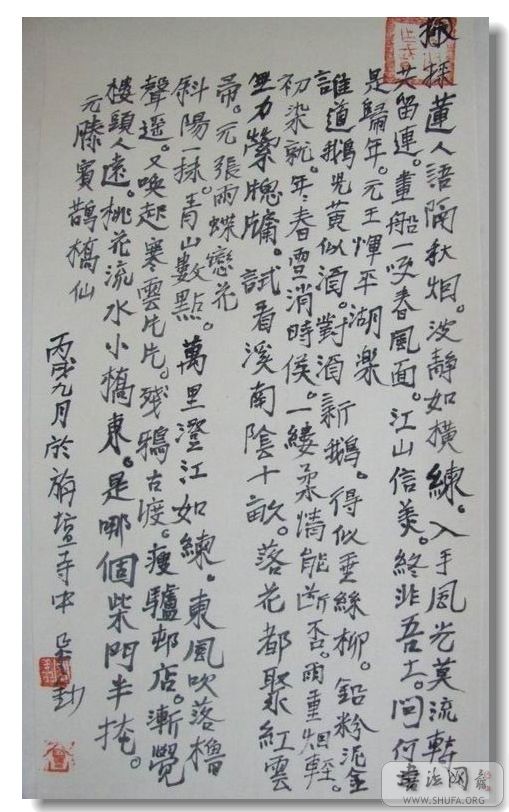 採蓮人語隔秋烟。波靜如橫練。入手風光莫流轉
共留連。畫船一咲春風面。江山信美。終非吾土。問何
是歸年。元王惲平湖樂
誰道鵝兒黃似酒。對酒新鵝。得似垂絲柳。鉛粉泥金
初染就。年年春雪消時候。一縷柔情能斷否。雨重烟輕。
無力縈窗牖。試看溪南陰十畝。落花都聚紅雲
帚。元張雨蝶戀花
斜陽一抹。青山數點。萬里澄江如練。東風吹落櫓
聲遙。又喚起寒雲片片。殘鴉古渡。瘦驢邨店。漸覺
樓頭人遠。桃花流水小橋東。是哪個柴門半掩。
元滕賓鵲橋仙
丙戌九月於旃檀寺中
書法网
WWW.SHUFA.ORG